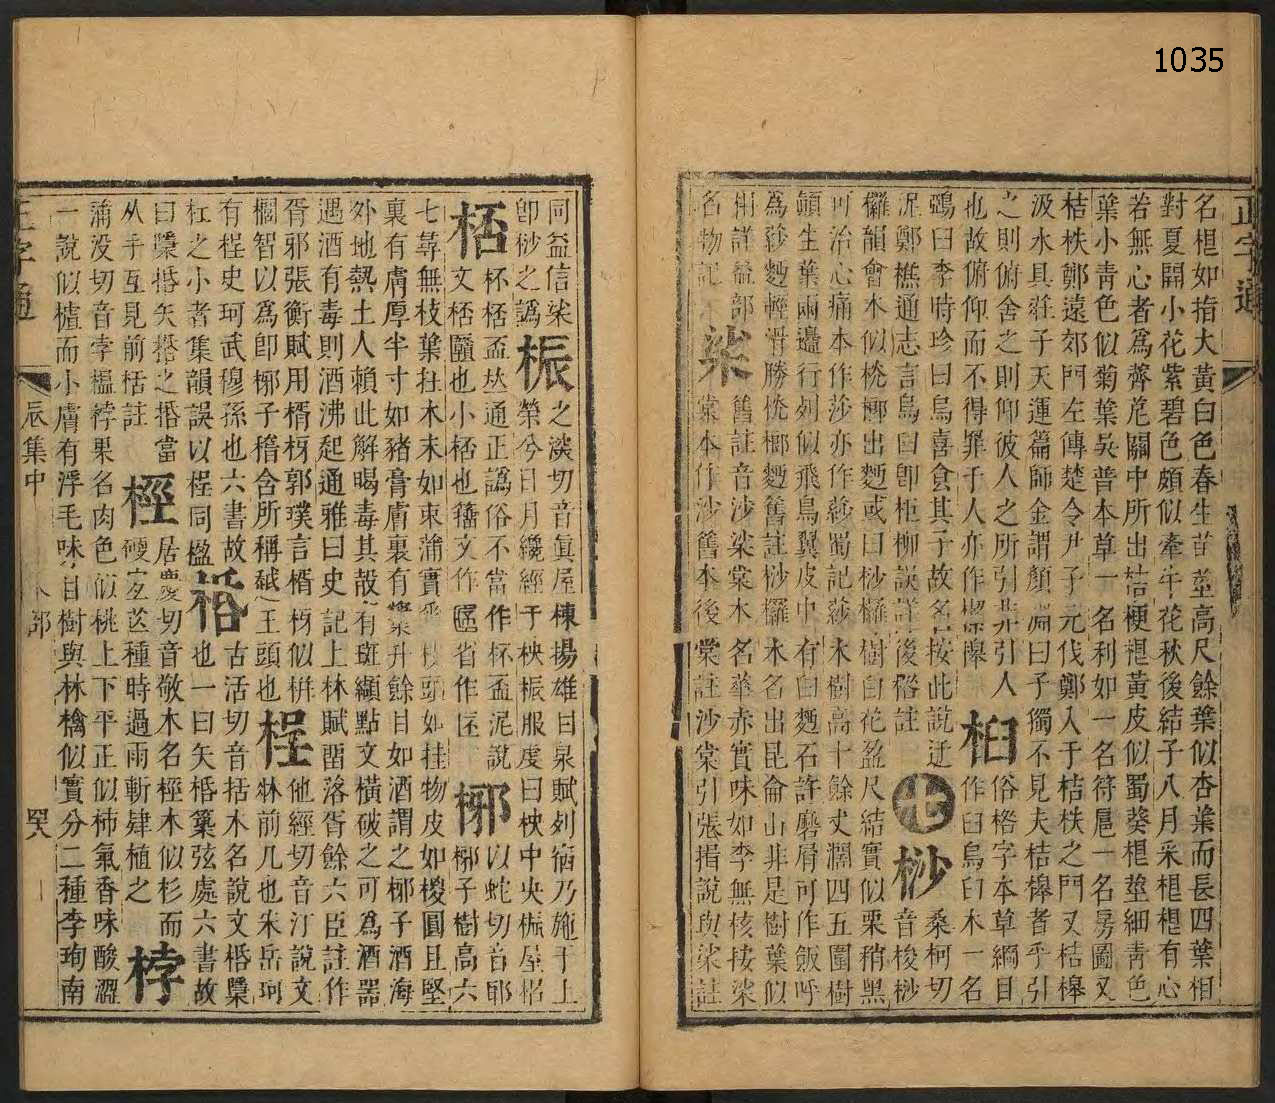 1035
正字通
名柤如指大黃白色春生苗莖高尺餘葉似杏葉而長四葉相
對夏開小花紫碧色頗似牽牛花秋後結子八月采柤柤有心
若無心者為薺苨關中所出桔梗柤黃皮似蜀葵柤莖細青色
葉小青色似菊葉吳普本草一名利如一名符扈一名房圖又
桔柣鄭遠郊門左傳楚令尹子元伐鄭入于桔柣之門又桔槔
汲水具莊子天運篇師金謂顏淵曰子獨不見夫桔槔者乎引
之則俯舍之則仰彼人之所引非引人
也故俯仰而不得罪于人亦作槔
桕俗楁字本草綱目
作臼烏臼木一名
鵶臼李時珍曰烏喜食其子故名按此說迂
泥鄭樵通志言烏臼即柜柳誤詳後楁註
七
桫桑柯切
音梭桫
欏韻會木似桄榔出麪或曰桫欏樹白花盈尺結實似栗稍黑
可治心痛本作莎亦作䔋蜀記䔋木樹高十餘丈濶四五圍樹
顛生葉兩邊行列似飛鳥翼皮中有白麪石許磨屑可作飯呼
為䔋麪輕滑勝桄榔麪舊註桫欏木名出昆侖山非是樹葉似
梢詳益部
名物記
桬舊註音沙桬棠木名華赤實味如李無核按桬
棠本作沙舊本後棠註沙棠引張揖說與桬註
同益信桬
即桫之譌
桭之淡切音眞屋棟揚雄甘泉賦列宿乃施于上
榮兮日月纔經于柍桭服虔曰柍中央桭屋梠
桮杯桮盃𠀤通正譌俗不當作杯盃泥說
文桮𠥓也小桮也籀文作匽省作匼
梛以蛇切音耶
梛子樹高六
七尋無枝葉在木末如束蒲實頭如挂物皮如㯶圓且堅
裏有膚厚半寸如豬膏膚裏有漿升餘甘如酒謂之梛子酒海
外地熱土人賴此解暍毒其殼有斑纈點文橫破之可為酒器
遇酒有毒則酒沸起通雅曰史記上林賦留落胥餘六臣註作
胥邪張衡賦用楈枒郭璞言楈枒似栟
櫚智以為即梛子稽含所稱越王頭也
桯他經切音汀說文
牀前几也宋岳珂
有桯史珂武穆孫也六書故
杠之小者集韻誤以桯同楹
桰古活切音括木名說文桰檃
也一曰矢桰築弦處六書故
曰檃桰矢桰之桰當
从手互見前栝註
桱居慶切音敬木名桱木似杉而
硬宏茲種時過雨斬肄植之
桲
蒲没切音孛榲桲果名肉色似桃上下平正似柿氣香味酸澀
一說似樝而小膚有浮毛味甘樹與林檎似實分二種李珣南
正字通
辰集中
木部
四六